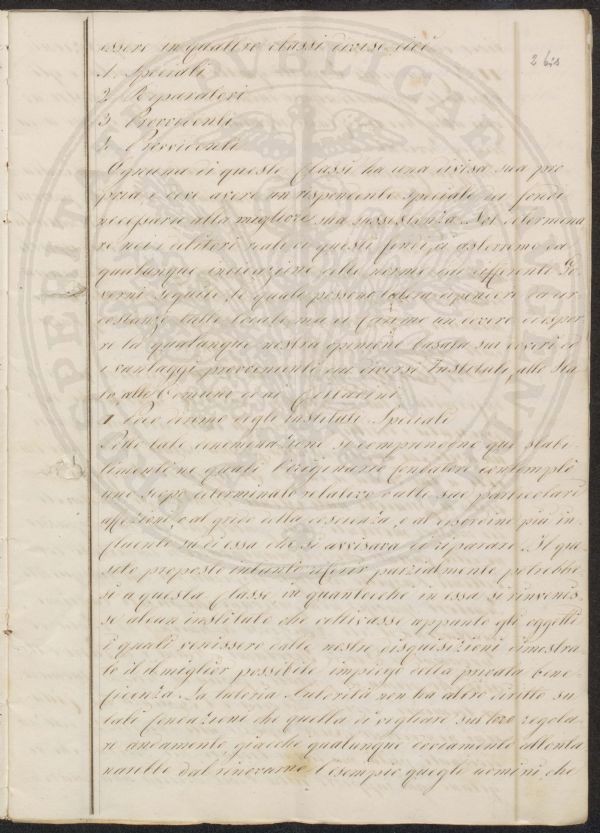 2 bis
essere in quattro classi divisi cioè
1. Speciali
2. Preparatori
3. Provvedenti
4. Providenti
Ognuna di queste Classi ha una divisa sua pro
pria e deve avere un rispondente speciale dei fondi
necessario alla migliore sua sussistenza. Nel determina
re noi i debitori reali di questi fondi ci asterremo da
qualunque indicazione delle norme dai differenti Go
verni seguite, le quali possono talora dipendere da cir
costanze tutte locali, ma ci faremo un dovere di espor
re la qualunque nostra opinione basata sui doveri ed
i vantaggi provvenienti dai diversi Instituti allo Sta
to alle Comuni ed ai Cittadini
1 Cosa diremo degli instituti Speciali
Sotto tale denominazione si comprendono que' stabi
limenti ne' quali l'originario fondatore contemplò
uno scopo determinato relativo o alle sue particolari
affezioni o al grido della coscienza, e al disordine più in
fluente su di essa che si avvisava di riparare. Il que
sito proposto intanto riferir parzialmente potrebbe
si a questa Classe in quantochè in essa si rinvenis
se alcun instituto che coltivasse appunto gli oggetti
i quali venissero dalle nostre disquisizioni dimostra
to il miglior possibile impiego della privata bene
ficenza. La tutoria Autorità non ha altro diritto su
tali fondazioni che quello di vegliare sul loro regola
re andamento, giacchè qualunque deviamento allonta
narebbe dal rinovarne l'esempio quegli uomini che